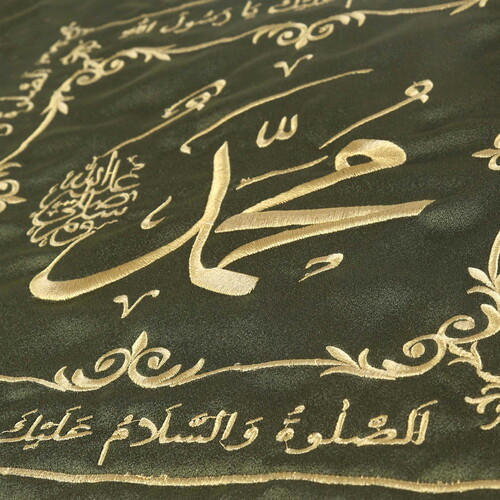 عليك يا رسول الله
الصلوة
محمد
صلى الله عليه وسلم
اَلصَّلٰوةُ وَالسَّلَامُ عَلَيْكَ